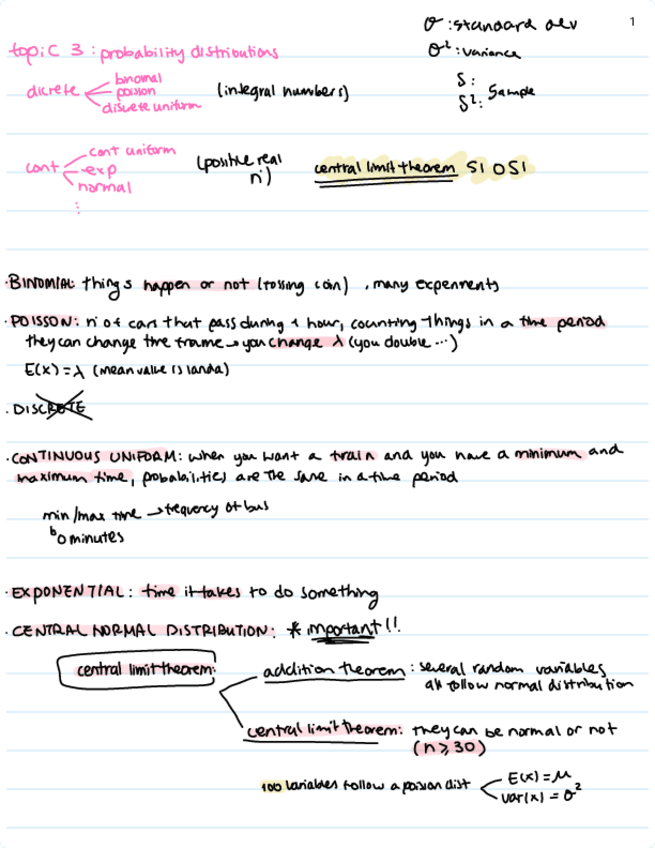 1
σ : standard dev
σ² : variance
S :
S² : Sample
topic 3 : probability distributions
dicrete
binomal
poison
discrete uniform
(integral numbers)
cont
cont uniform
exp
normal
⋮
(posible real
n°)
central limit theorem SI O SI
·BINOMIAL: things happen or not (tossing coin) , many experiments
·POISSON: n° of cars that pass during 1 hour, counting things in a time period
they can change the frame → you change λ (you double ...)
E(x) = λ (mean value is landa)
. DISCRETE
.CONTINUOUS UNIFORM: when you want a train and you have a minimum and
maximum time, probabilities are the same in a time period
min/max time → frequency of bus
0 minutes
·EXPONENTIAL: time it takes to do something
. CENTRAL NORMAL DISTRIBUTION: * important!!
central limit theorem:
addition theorem : several random variables
all follow normal distribution
central limit theorem: they can be normal or not
(n ≥ 30)
100 variables follow a poision dist
E(x) = μ
var(x) = σ²